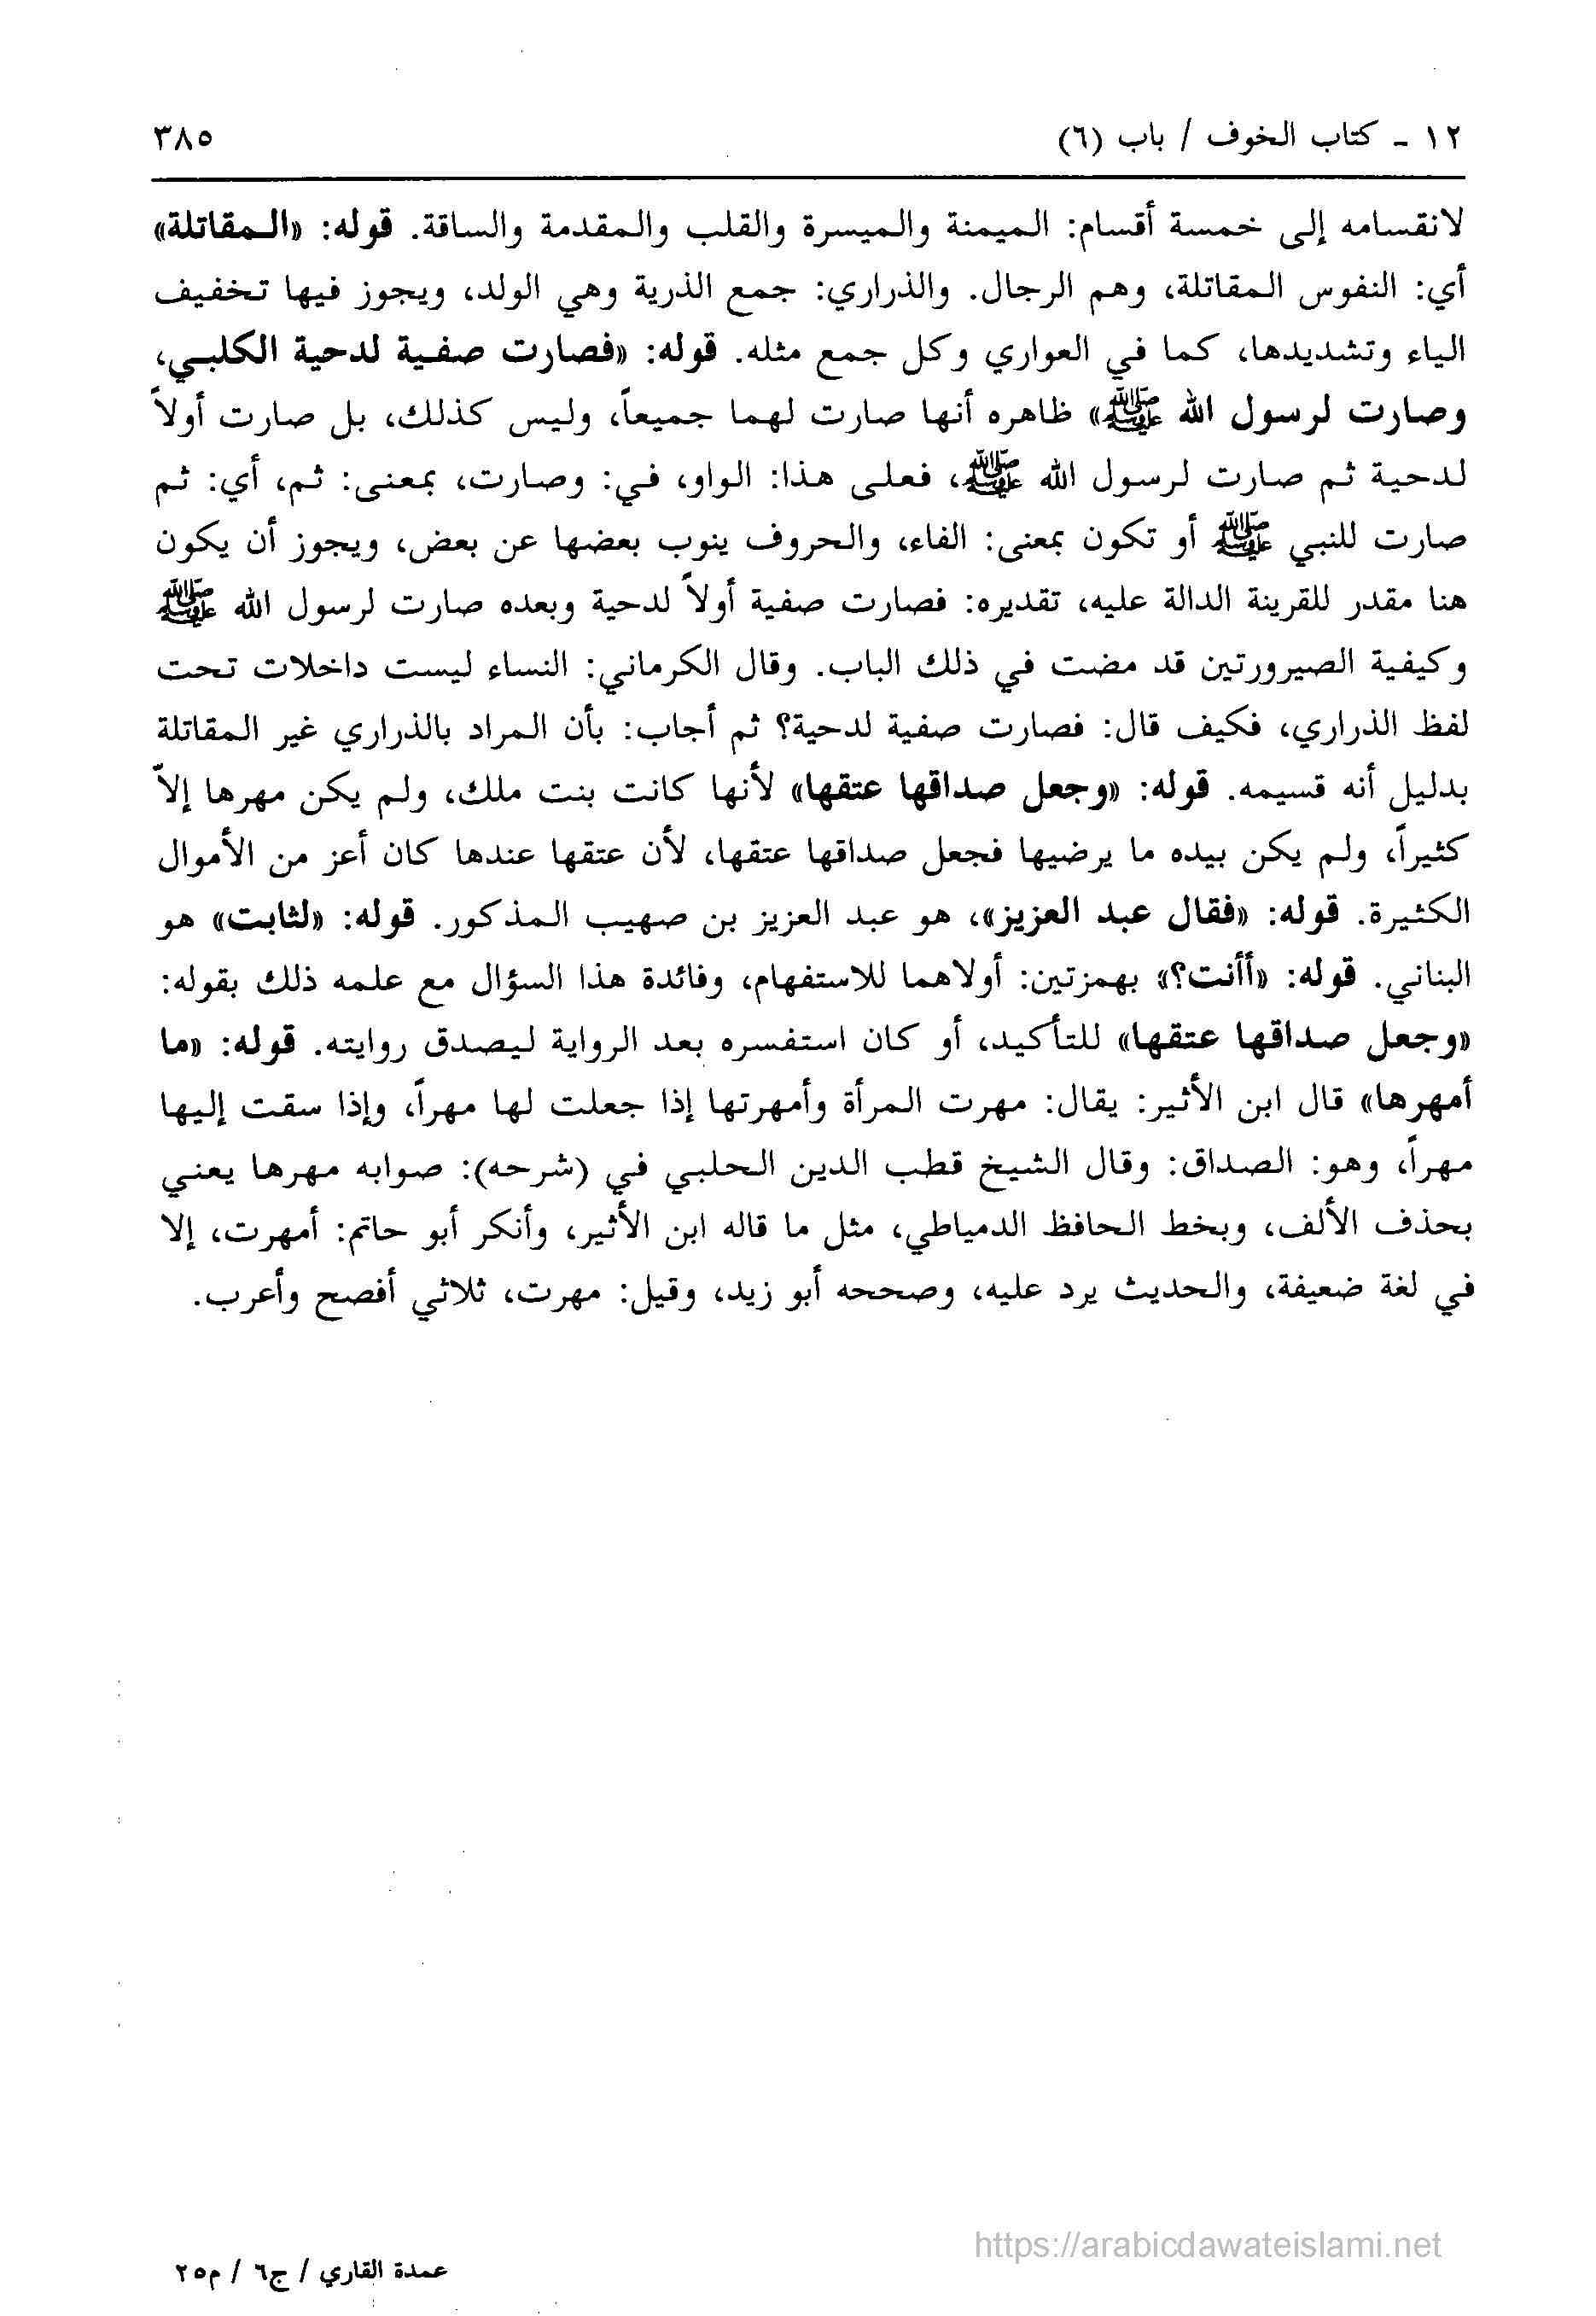 ١٢ - كتاب الخوف / باب (٦) ٣٨٥
لانقسامه إلى خمسة أقسام: الميمنة والميسرة والقلب والمقدمة والساقة. قوله: «المقاتلة»
أي: النفوس المقاتلة، وهم الرجال. والذراري: جمع الذرية وهي الولد، ويجوز فيها تخفيف
الياء وتشديدها، كما في العواري وكل جمع مثله. قوله: «فصارت صفية لدحية الكلبي،
وصارت لرسول الله ﷺ» ظاهره أنها صارت لهما جميعاً، وليس كذلك، بل صارت أولاً
لدحية ثم صارت لرسول الله ﷺ، فعلى هذا: الواو، في: وصارت، بمعنى: ثم، أي: ثم
صارت للنبي ﷺ أو تكون بمعنى: الفاء، والحروف ينوب بعضها عن بعض، ويجوز أن يكون
هنا مقدر للقرينة الدالة عليه، تقديره: فصارت صفية أولاً لدحية وبعده صارت لرسول الله ﷺ
وكيفية الصيرورتين قد مضت في ذلك الباب. وقال الكرماني: النساء ليست داخلات تحت
لفظ الذراري، فكيف قال: فصارت صفية لدحية؟ ثم أجاب: بأن المراد بالذراري غير المقاتلة
بدليل أنه قسيمه. قوله: «وجعل صداقها عتقها» لأنها كانت بنت ملك، ولم يكن مهرها إلاّ
كثيراً، ولم يكن بيده ما يرضيها فجعل صداقها عتقها، لأن عتقها عندها كان أعز من الأموال
الكثيرة. قوله: «فقال عبد العزيز»، هو عبد العزيز بن صهيب المذكور. قوله: «لثابت» هو
البناني. قوله: «أأنت؟» بهمزتين: أولاهما للاستفهام، وفائدة هذا السؤال مع علمه ذلك بقوله:
«وجعل صداقها عتقها» للتأكيد، أو كان استفسره بعد الرواية ليصدق روايته. قوله: «ما
أمهرها» قال ابن الأثير: يقال: مهرت المرأة وأمهرتها إذا جعلت لها مهراً، وإذا سقت إليها
مهراً، وهو: الصداق: وقال الشيخ قطب الدين الحلبي في (شرحه): صوابه مهرها يعني
بحذف الألف، وبخط الحافظ الدمياطي، مثل ما قاله ابن الأثير، وأنكر أبو حاتم: أمهرت، إلا
في لغة ضعيفة، والحديث يرد عليه، وصححه أبو زيد، وقيل: مهرت، ثلاثي أفصح وأعرب.
https://arabicdawateislami.net
عمدة القاري / ج٦ / م٢٥